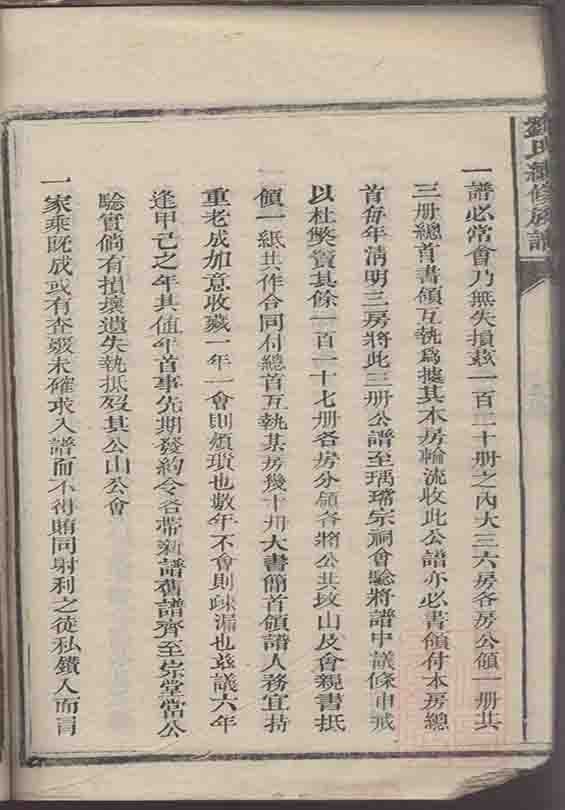 劉氏續修族譜
一譜必常會乃無失損茲一百二十冊之內大三六房各房公領一冊共
三冊總首書領互執為據其本房輪流收此公譜亦必書領付本房總
首每年清明三房將此三冊公譜至瑀璠宗祠會驗將譜中議條申戒
以杜獘竇其餘一百一十七冊各房分領各將公共坟山及會親書抵
領一紙共作合同付總首互執某房幾十冊大書簡首領譜人務宜持
重老成加意收藏一年一會則煩瑣也數年不會則疎漏也茲議六年
逢甲己之年其值年首事先期發約令各帶新譜舊譜齊至宗堂當公
驗實倘有損壞遺失執抵毀其公山公會
一家乘既成或有查察未確求入譜而不得賄同射利之徒私鑽入而冐